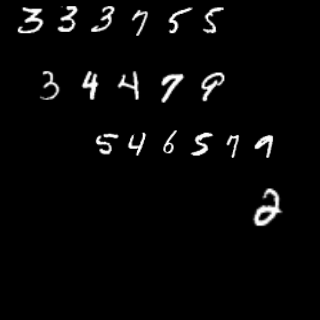 333755
34479
546579
2